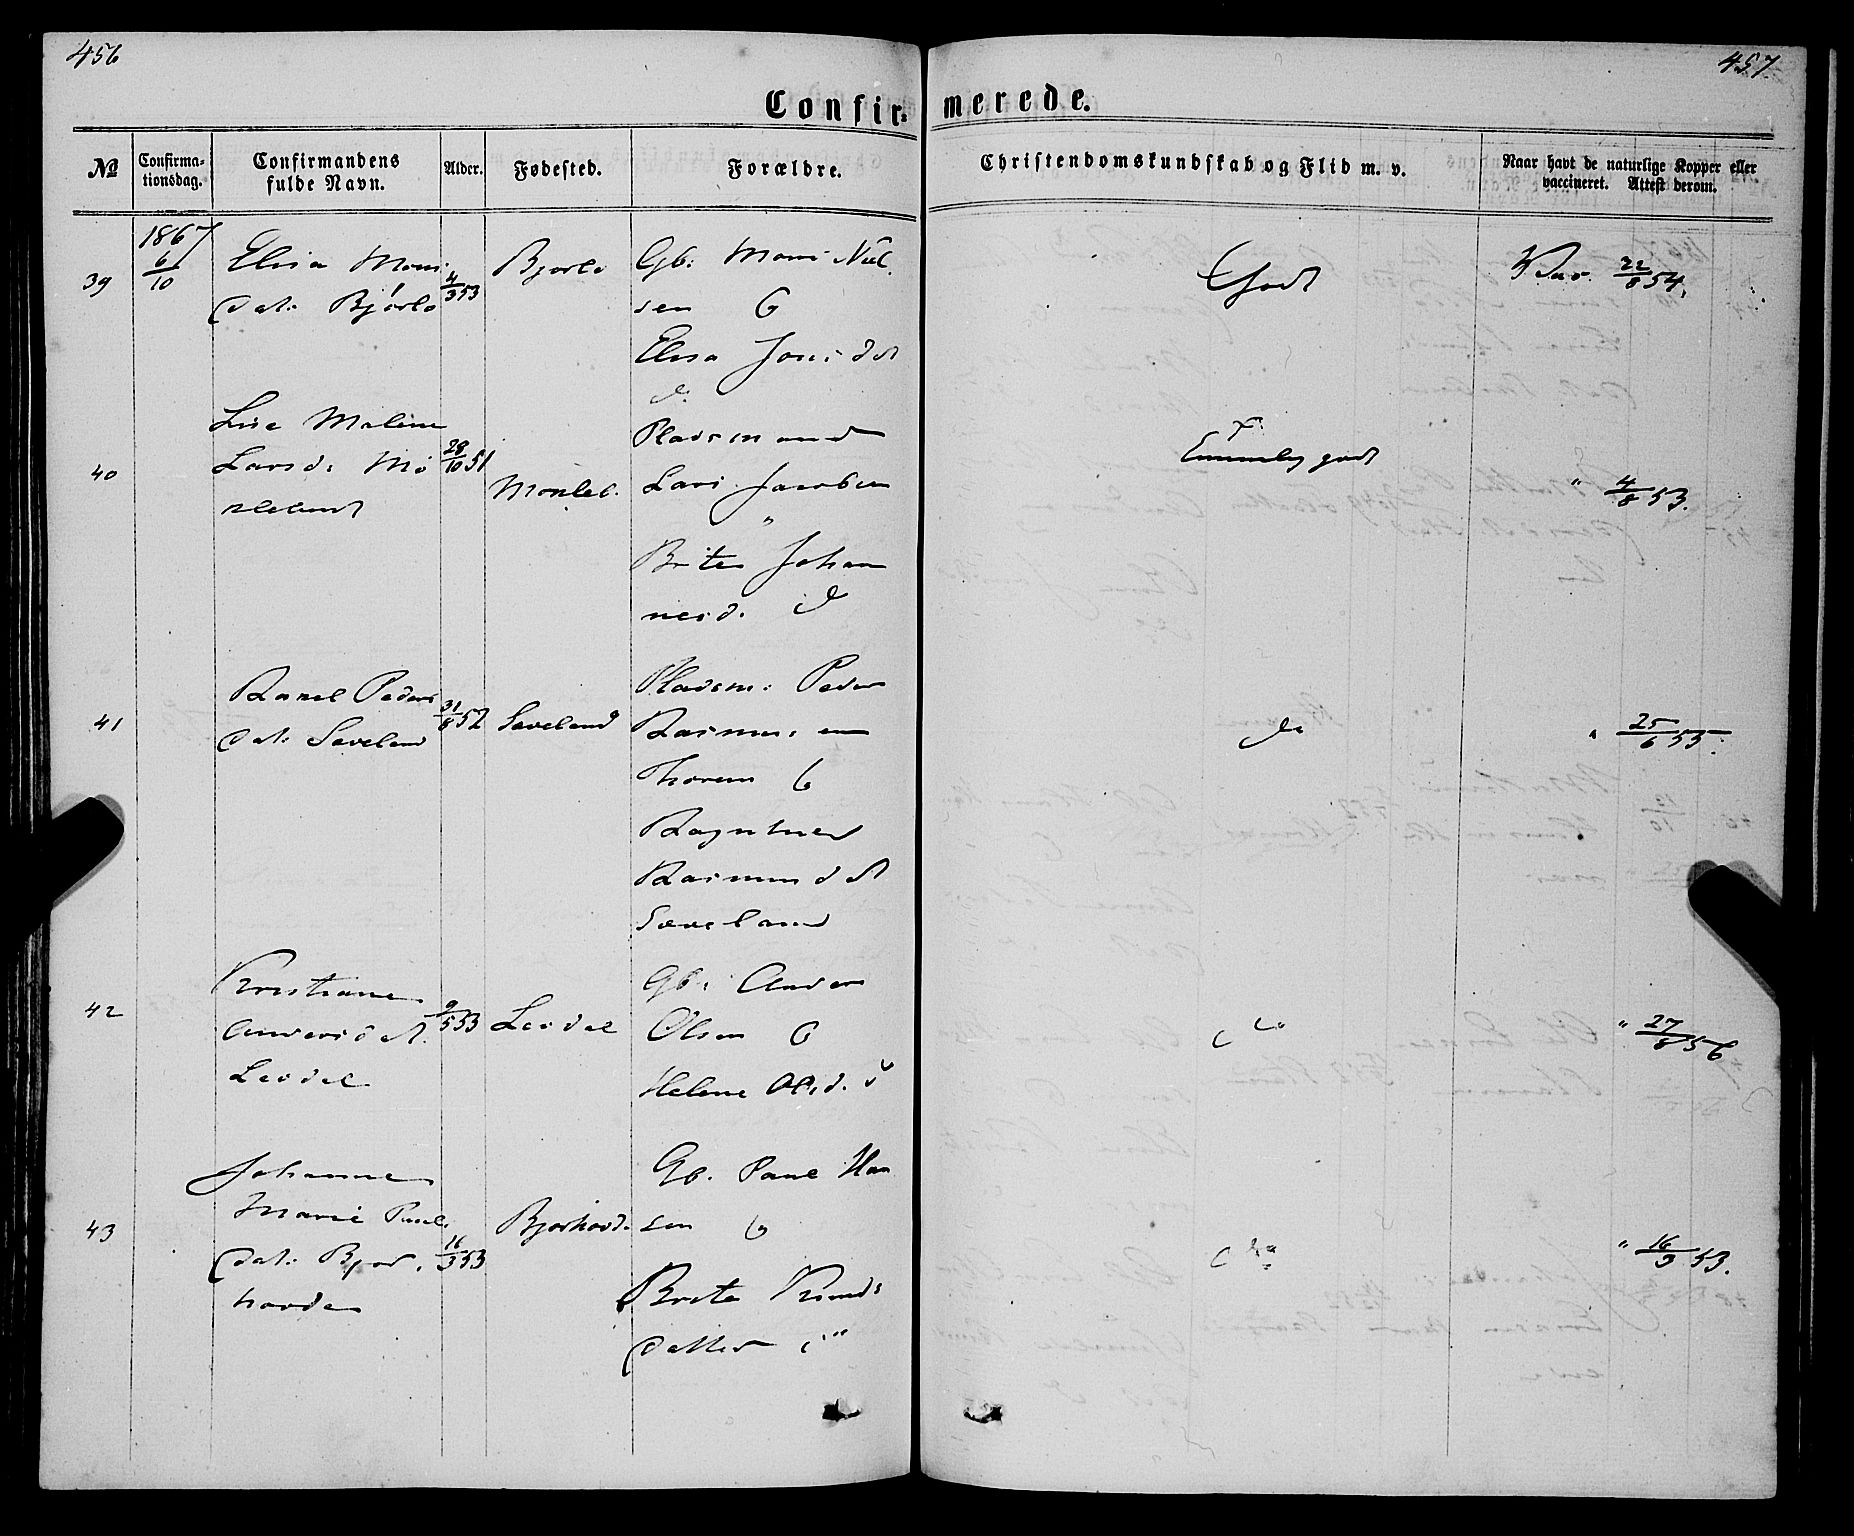 456
457
Confir- merede.
No
Confirma-
tionsdag.
Confirmandens
fulde Navn.
Alder.
Fødested.
Forældre.
Christendomskundskab og Flid m. v.
Naar havt de naturlige Kopper eller
vaccineret. Attest derom.
39
1867
6/10
Elisa Mons
dat: Bjørlo
4/3 53
Bjørlo
Gb: Mons Niel
sen
Elisa Jonsdat
Godt
Vac. 22/8 54.
40
Lise Maline
Larsd: Mo
neland
28/10 51
Pladsmand
Lars Jacobsen
"
Brite Johan
nesd.
godt
" 4/8 53.
41
Ranel Peders
dat: Saveland
31/8 52
Saveland
Pladsm: Peder
Rasmus en
Ragnhild
Rasmusdat
Saveland
do
" 25/6 55.
42
Kristiane
Andersdat.
Levdal
9/5 53
Levdal
Gb: Anders
Olsen
Helene Olsd.
" 27/8 56
43
Johanne
Marie Paul
dat: Bjor
hovde
16/3 53
Bjorhovd.
Gb. Paul Han
sen
Brite Knuds
datter
" 16/9 53.